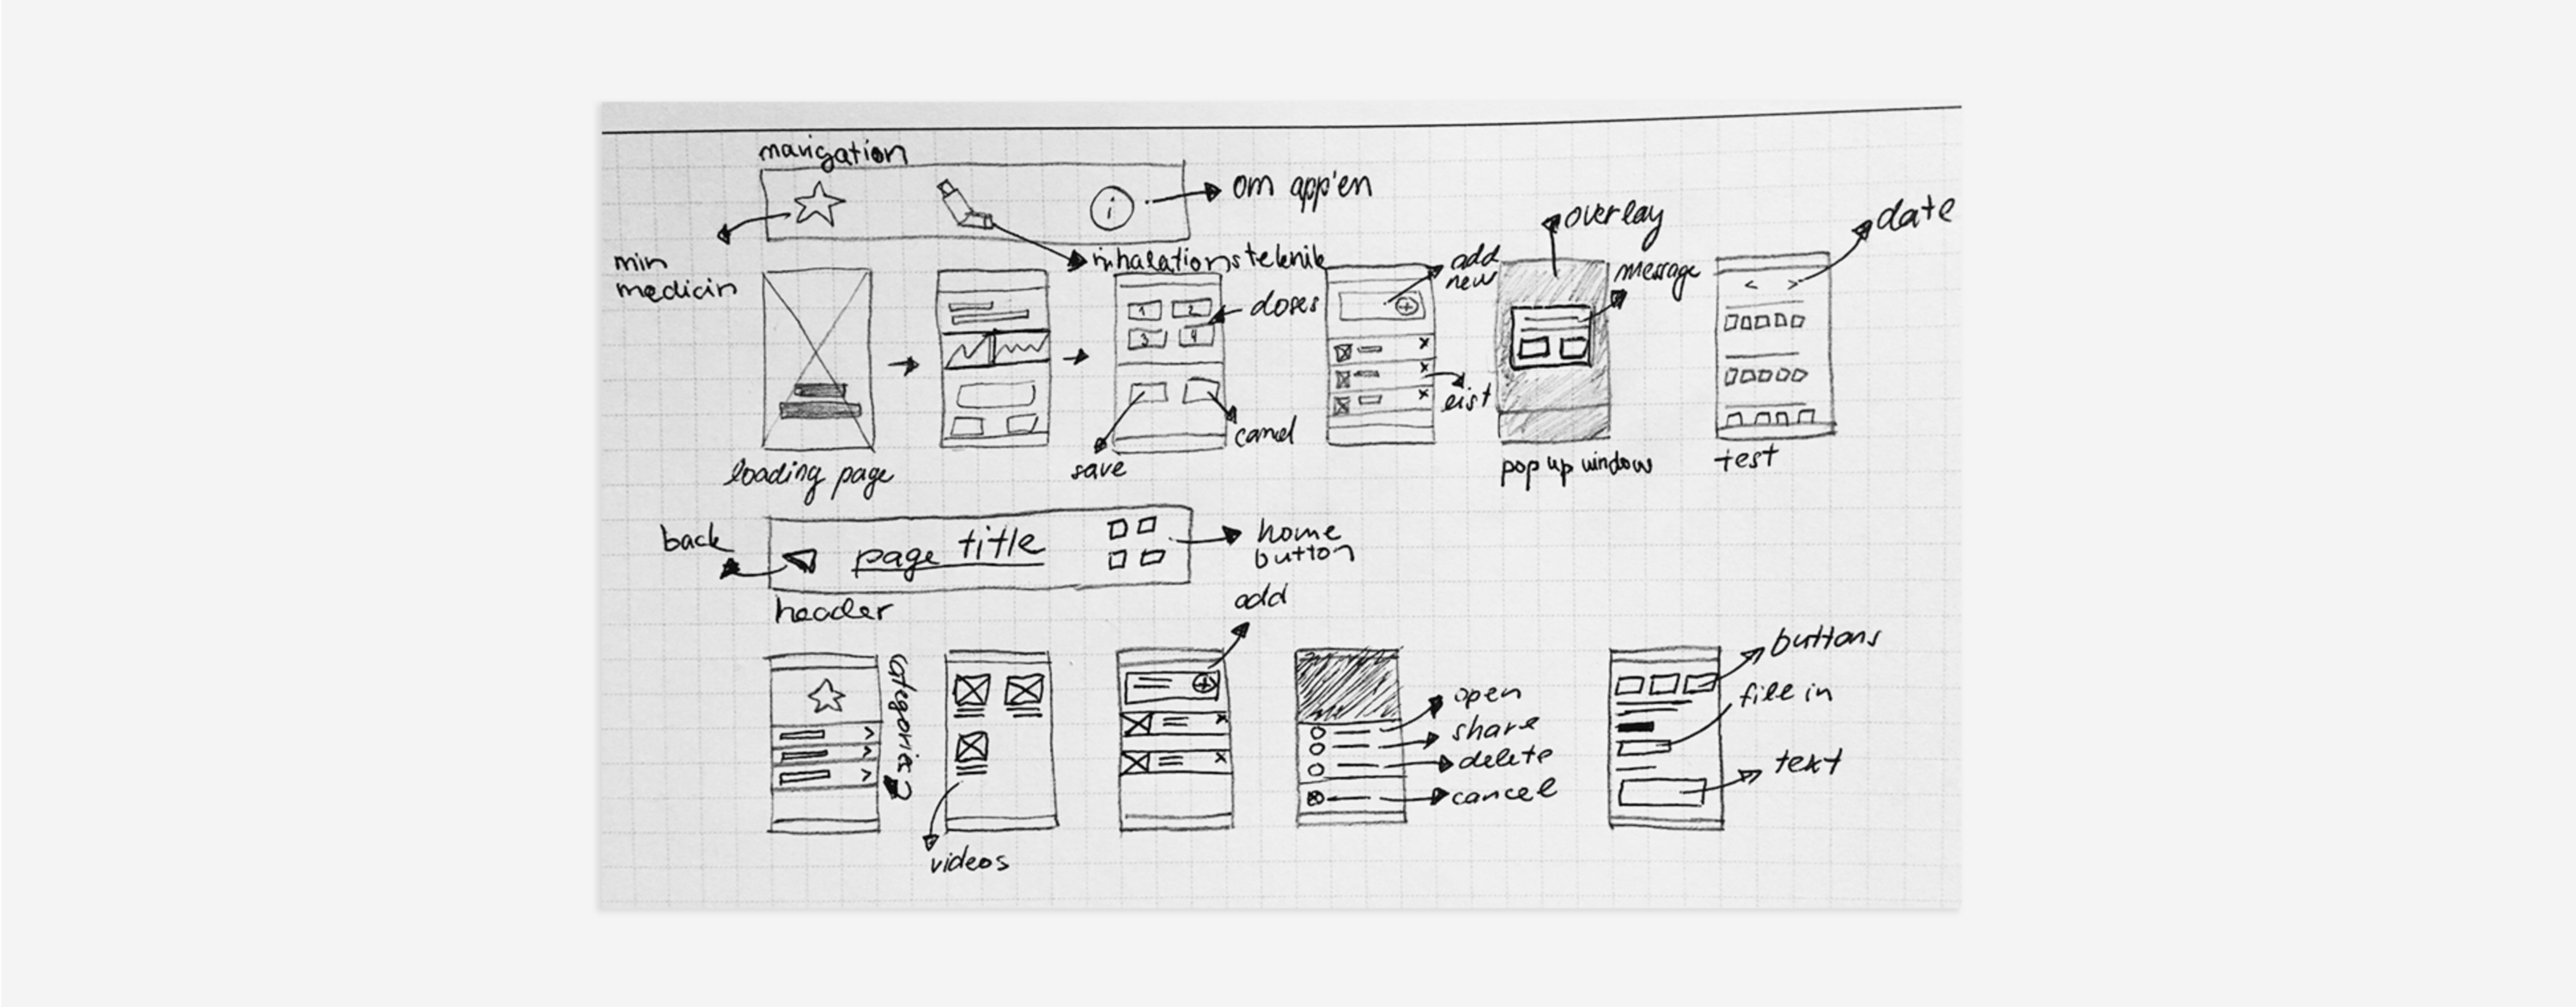 navigation
om app'en
min
medicin
inhalationsteknik
add
new
overlay
message
date
doses
1 2
3 4
list
save
cancel
loading page
pop up window
test
back
page title
home
button
header
add
categories
videos
open
share
delete
cancel
buttons
fill in
text